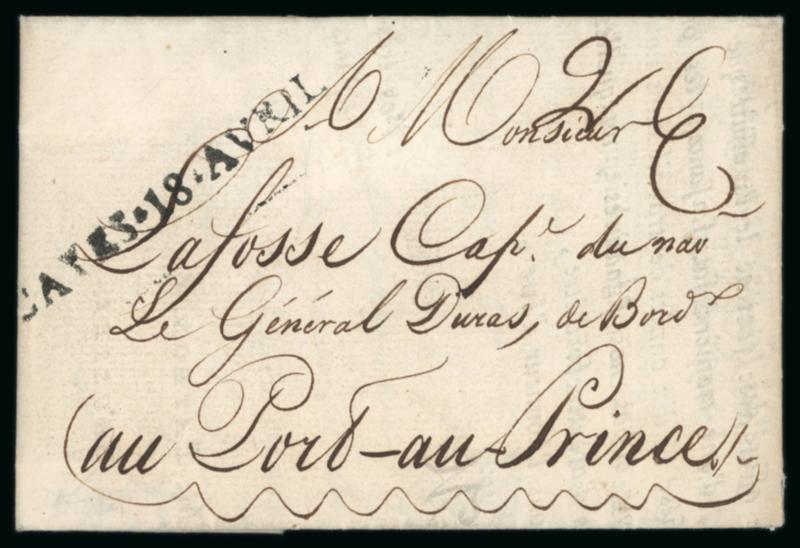 CAYES·18·AVRIL
A Monsieur
Lafosse Cap.ⁿ du nav
Le Général Duras, de Bord.ˣ
au Port-au-Prince